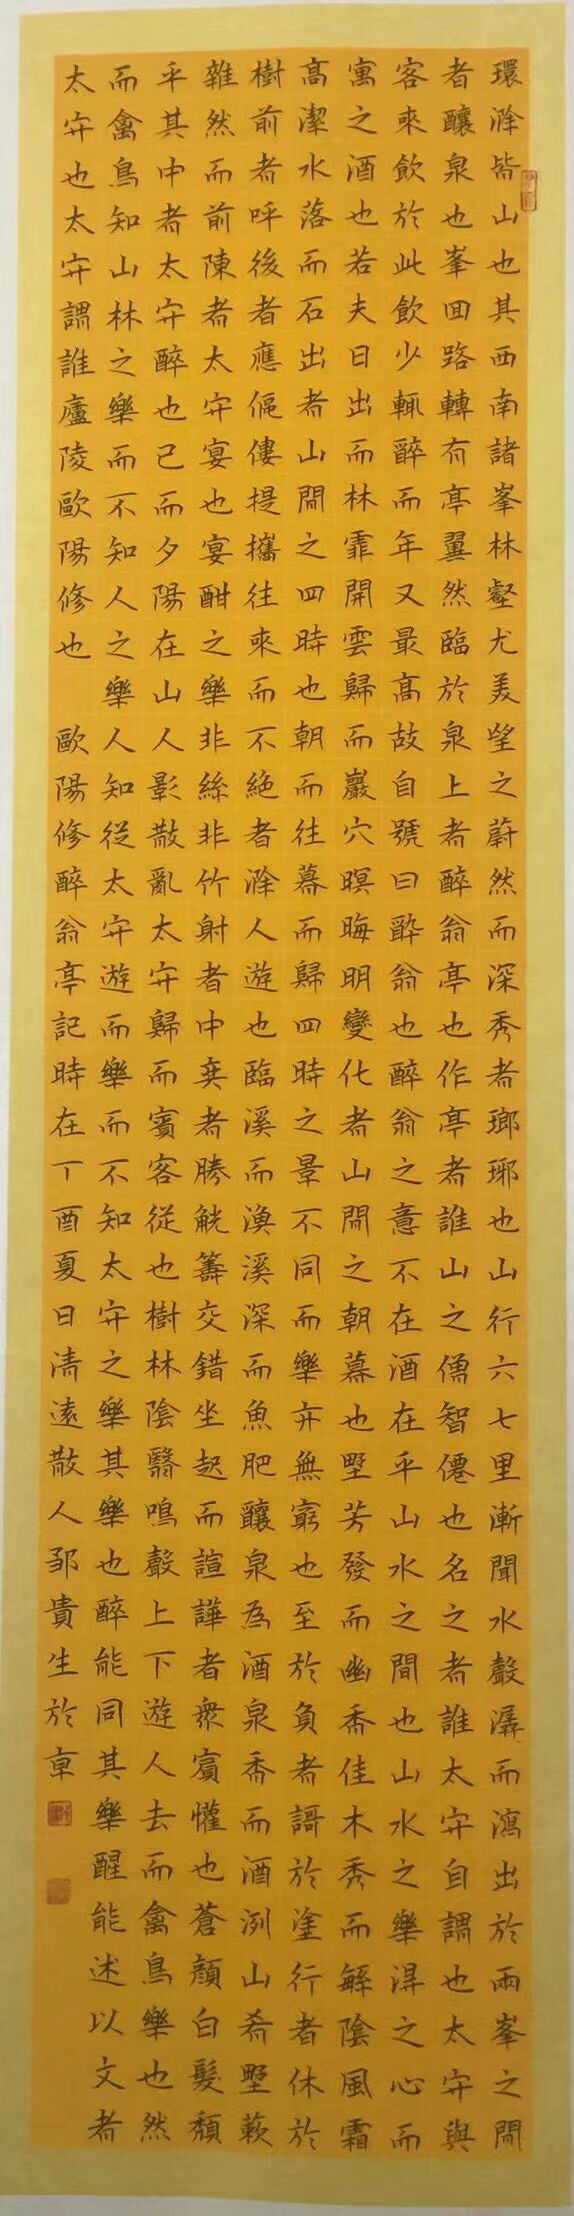 環滁皆山也其西南諸峯林壑尤美望之蔚然而深秀者瑯琊也山行六七里漸聞水聲潺而瀉出於兩峯之間
者釀泉也峯囬路轉有亭翼然臨於泉上者醉翁亭也作亭者誰山之僧智僊也名之者誰太守自謂也太守與
客來飲於此飲少輒醉而年又最高故自號曰醉翁也醉翁之意不在酒在乎山水之間也山水之樂得之心而
寓之酒也若夫日出而林霏開雲歸而巖穴暝晦明變化者山間之朝暮也墅芳發而幽香佳木秀而繁陰風霜
高潔水落而石出者山間之四時也朝而往暮而歸四時之景不同而樂亦無窮也至於負者謌於塗行者休於
樹前者呼後者應傴僂提攜往來而不絕者滁人遊也臨溪而漁溪深而魚肥釀泉為酒泉香而酒洌山肴墅蔌
雜然而前陳者太守宴也宴酣之樂非絲非竹射者中奕者勝觥籌交錯坐起而諠譁者眾賓懽也蒼顏白髮頹
乎其中者太守醉也已而夕陽在山人影散亂太守歸而賓客從也樹林陰翳鳴聲上下遊人去而禽鳥樂也然
而禽鳥知山林之樂而不知人之樂人知從太守遊而樂而不知太守之樂其樂也醉能同其樂醒能述以文者
太守也太守謂誰廬陵歐陽修也 歐陽修醉翁亭記時在丁酉夏日清遠散人邹貴生於京